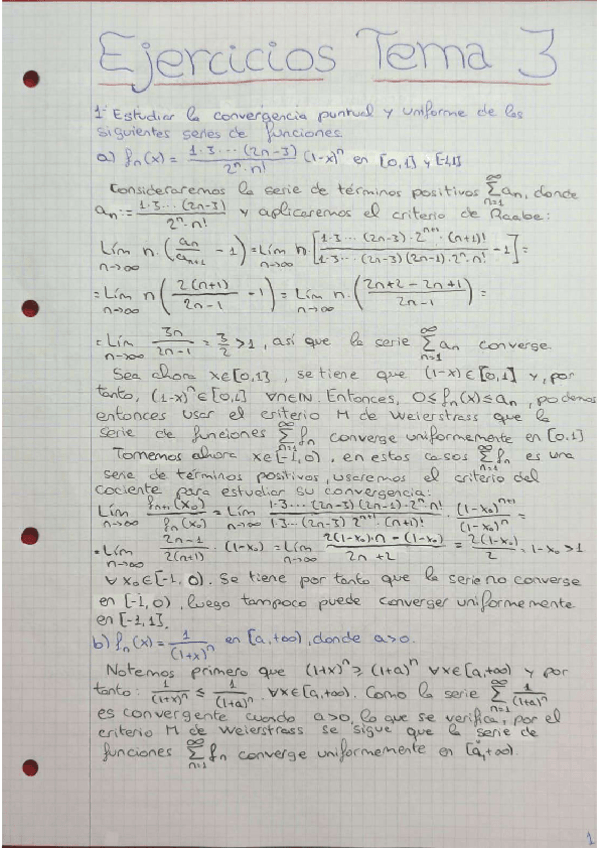 Ejercicios Tema 3
1. Estudiar la convergencia puntual y uniforme de las
siguientes series de funciones.
a) fₙ(x) = 1·3···(2n-3) / 2ⁿ·n! (1-x)ⁿ en [0,1] y [-1,1]
Consideraremos la serie de términos positivos ∑_{n=1}^∞ aₙ, donde
aₙ := 1·3···(2n-3) / 2ⁿ·n! y aplicaremos el criterio de Raabe:
Lím_{n→∞} n·(aₙ/aₙ₊₁ - 1) = Lím_{n→∞} n·[1·3···(2n-3)·2ⁿ⁺¹·(n+1)! / 1·3···(2n-3)(2n-1)·2ⁿ·n! - 1] =
= Lím_{n→∞} n(2(n+1)/(2n-1) - 1) = Lím_{n→∞} n·((2n+2-2n+1)/(2n-1)) =
= Lím_{n→∞} 3n/(2n-1) = 3/2 > 1, así que la serie ∑_{n=1}^∞ aₙ converge.
Sea ahora x∈[0,1], se tiene que (1-x)∈[0,1] y, por
tanto, (1-x)ⁿ∈[0,1] ∀n∈ℕ. Entonces, 0≤fₙ(x)≤aₙ, podemos
entonces usar el criterio M de Weierstrass que la
serie de funciones ∑_{n=1}^∞ fₙ converge uniformemente en [0,1]
Tomemos ahora x∈[-1,0), en estos casos ∑_{n=1}^∞ fₙ es una
serie de términos positivos, usaremos el criterio del
cociente para estudiar su convergencia:
Lím_{n→∞} fₙ₊₁(x₀)/fₙ(x₀) = Lím_{n→∞} 1·3···(2n-3)(2n-1)·2ⁿ·n! / 1·3···(2n-3) 2ⁿ⁺¹·(n+1)! · (1-x₀)ⁿ⁺¹/(1-x₀)ⁿ =
= Lím_{n→∞} (2n-1)/2(n+1) · (1-x₀) = Lím_{n→∞} (2(1-x₀)·n - (1-x₀))/(2n+2) = 2(1-x₀)/2 = 1-x₀ > 1
∀x₀∈[-1,0). Se tiene por tanto que la serie no converge
en [-1,0), luego tampoco puede converger uniformemente
en [-1,1].
b) fₙ(x) = 1/(1+x)ⁿ en [a,+∞), donde a>0.
Notemos primero que (1+x)ⁿ ≥ (1+a)ⁿ ∀x∈[a,+∞) y por
tanto: 1/(1+x)ⁿ ≤ 1/(1+a)ⁿ ∀x∈[a,+∞). Como la serie ∑_{n=1}^∞ 1/(1+a)ⁿ
es convergente cuando a>0, lo que se verifica, por el
criterio M de Weierstrass se sigue que la serie de
funciones ∑_{n=1}^∞ fₙ converge uniformemente en [a,+∞).
1